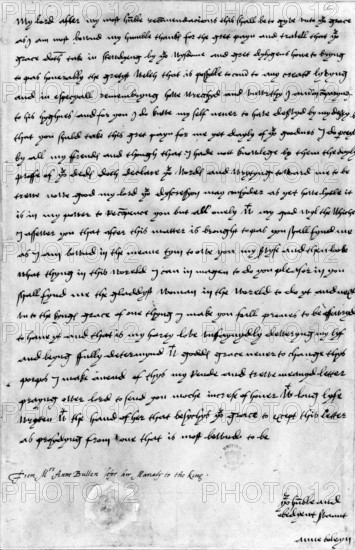 My lord after my most humble recomendations this shall be to gyve unto yr grace
as I am most bownd my humble thanks for the gret payn and travell that yr
grace doth take in stewdyeng by yr wysdome and gret dylygens howe to bryng
to pas honerably the gretyst welth that is possible to com to any creator lyvyng
and in especyall remembryng howe wrecchyd and unworthy I am in comparyng
to his hyghnes and for you I do knowe my selfe never to have deservyd by my deserts
that you shuld take this gret payn for me yet dayly of yr goodnes I do perceyve
by all my frends and though that I had not knowlege by them the dayly
proffe of yr deds doth declare yr words and wrytyng toward me to be
trewe nowe good my lord yr dyscressyon may consyder as yet howe lytle it
is in my power to recompence you but all onely wt my good wyl the whiche
I assewer you that after this matter is brought to pas you shall fynd me
as I am bownd in the meane tym to owe you my servyse and then loke
what thyng in this woreld I can immagen to do you pleasor in you
shall fynd me the gladdyst woman in the woreld to do yt and next
unto the kyngs grace of one thyng I make you full promes to be assewryd
to have yt and that is my harty love unfaynydly dewering my lyf
and beyng fully determynd wt goddes grace never to change thys
porpos I make an end of thys my reude and trewe meanyd letter
prayng ower lord to send you moche increse of honer wt long lyfe
wrytten wt the hand of her that besychys yr grace to except this letter
as prosydyng from one that is most bownde to be
From Mrs Anne Bullen
to the King
yr humble and
obedyent servant
anne boleyn
PHOTO12